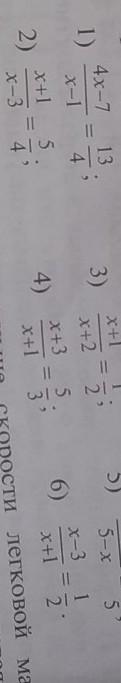 1) \frac{4x-7}{x-1} = \frac{13}{4}; 3) \frac{x+1}{x+2} = \frac{1}{2}; 5) 5-x 5;
2) \frac{x+1}{x-3} = \frac{5}{4}; 4) \frac{x+3}{x+1} = \frac{5}{3}; 6) \frac{x-3}{x+1} = \frac{1}{2}.
скорости легковой ма